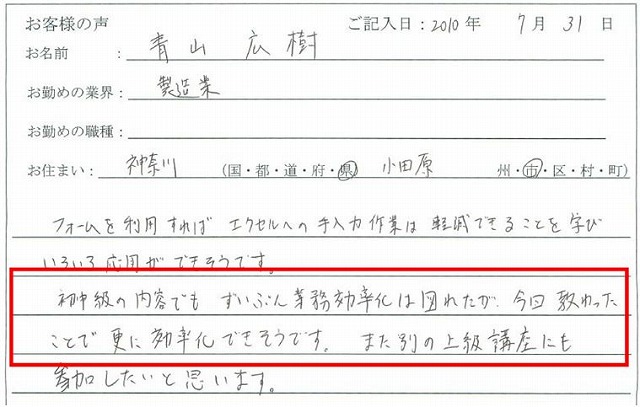 お客様の声 ご記入日:2010年 7月 31日
お名前 : 青山 広樹
お勤めの業界: 製造業
お勤めの職種:
お住まい: 神奈川 (国・都・道・府・県) 小田原 州・市・区・村・町)
フォームを利用すれば エクセルへの手入力作業は 軽減できることを学び
いろいろ応用ができそうです。
初中級の内容でも ずいぶん業務効率化は図れたが、今回教わった
ことで更に効率化できそうです。 また別の上級講座にも
参加したいと思います。